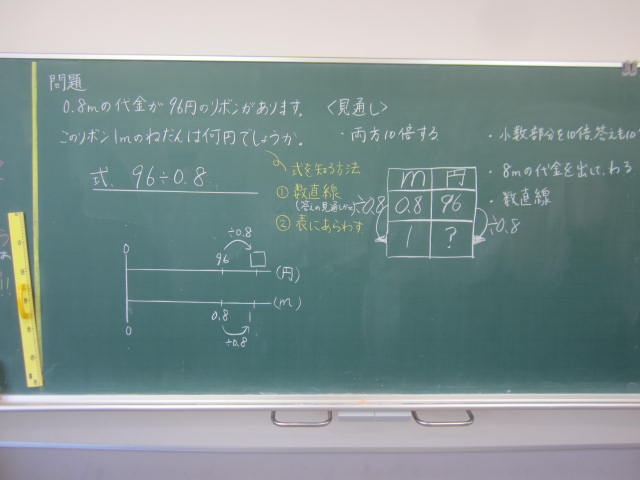 問題
0.8mの代金が96円のリボンがあります。
このリボン1mのねだんは何円でしょうか。
式 96÷0.8
式を知る方法
① 数直線
② 表にあらわす
÷0.8
96 □
0 (円)
0 0.8 1 (m)
÷0.8
〈見通し〉
・両方10倍する
m 円
÷0.8 0.8 96
1 ? ÷0.8
・小数部分を10倍、答えも10
・8mの代金を出して、わる
・数直線